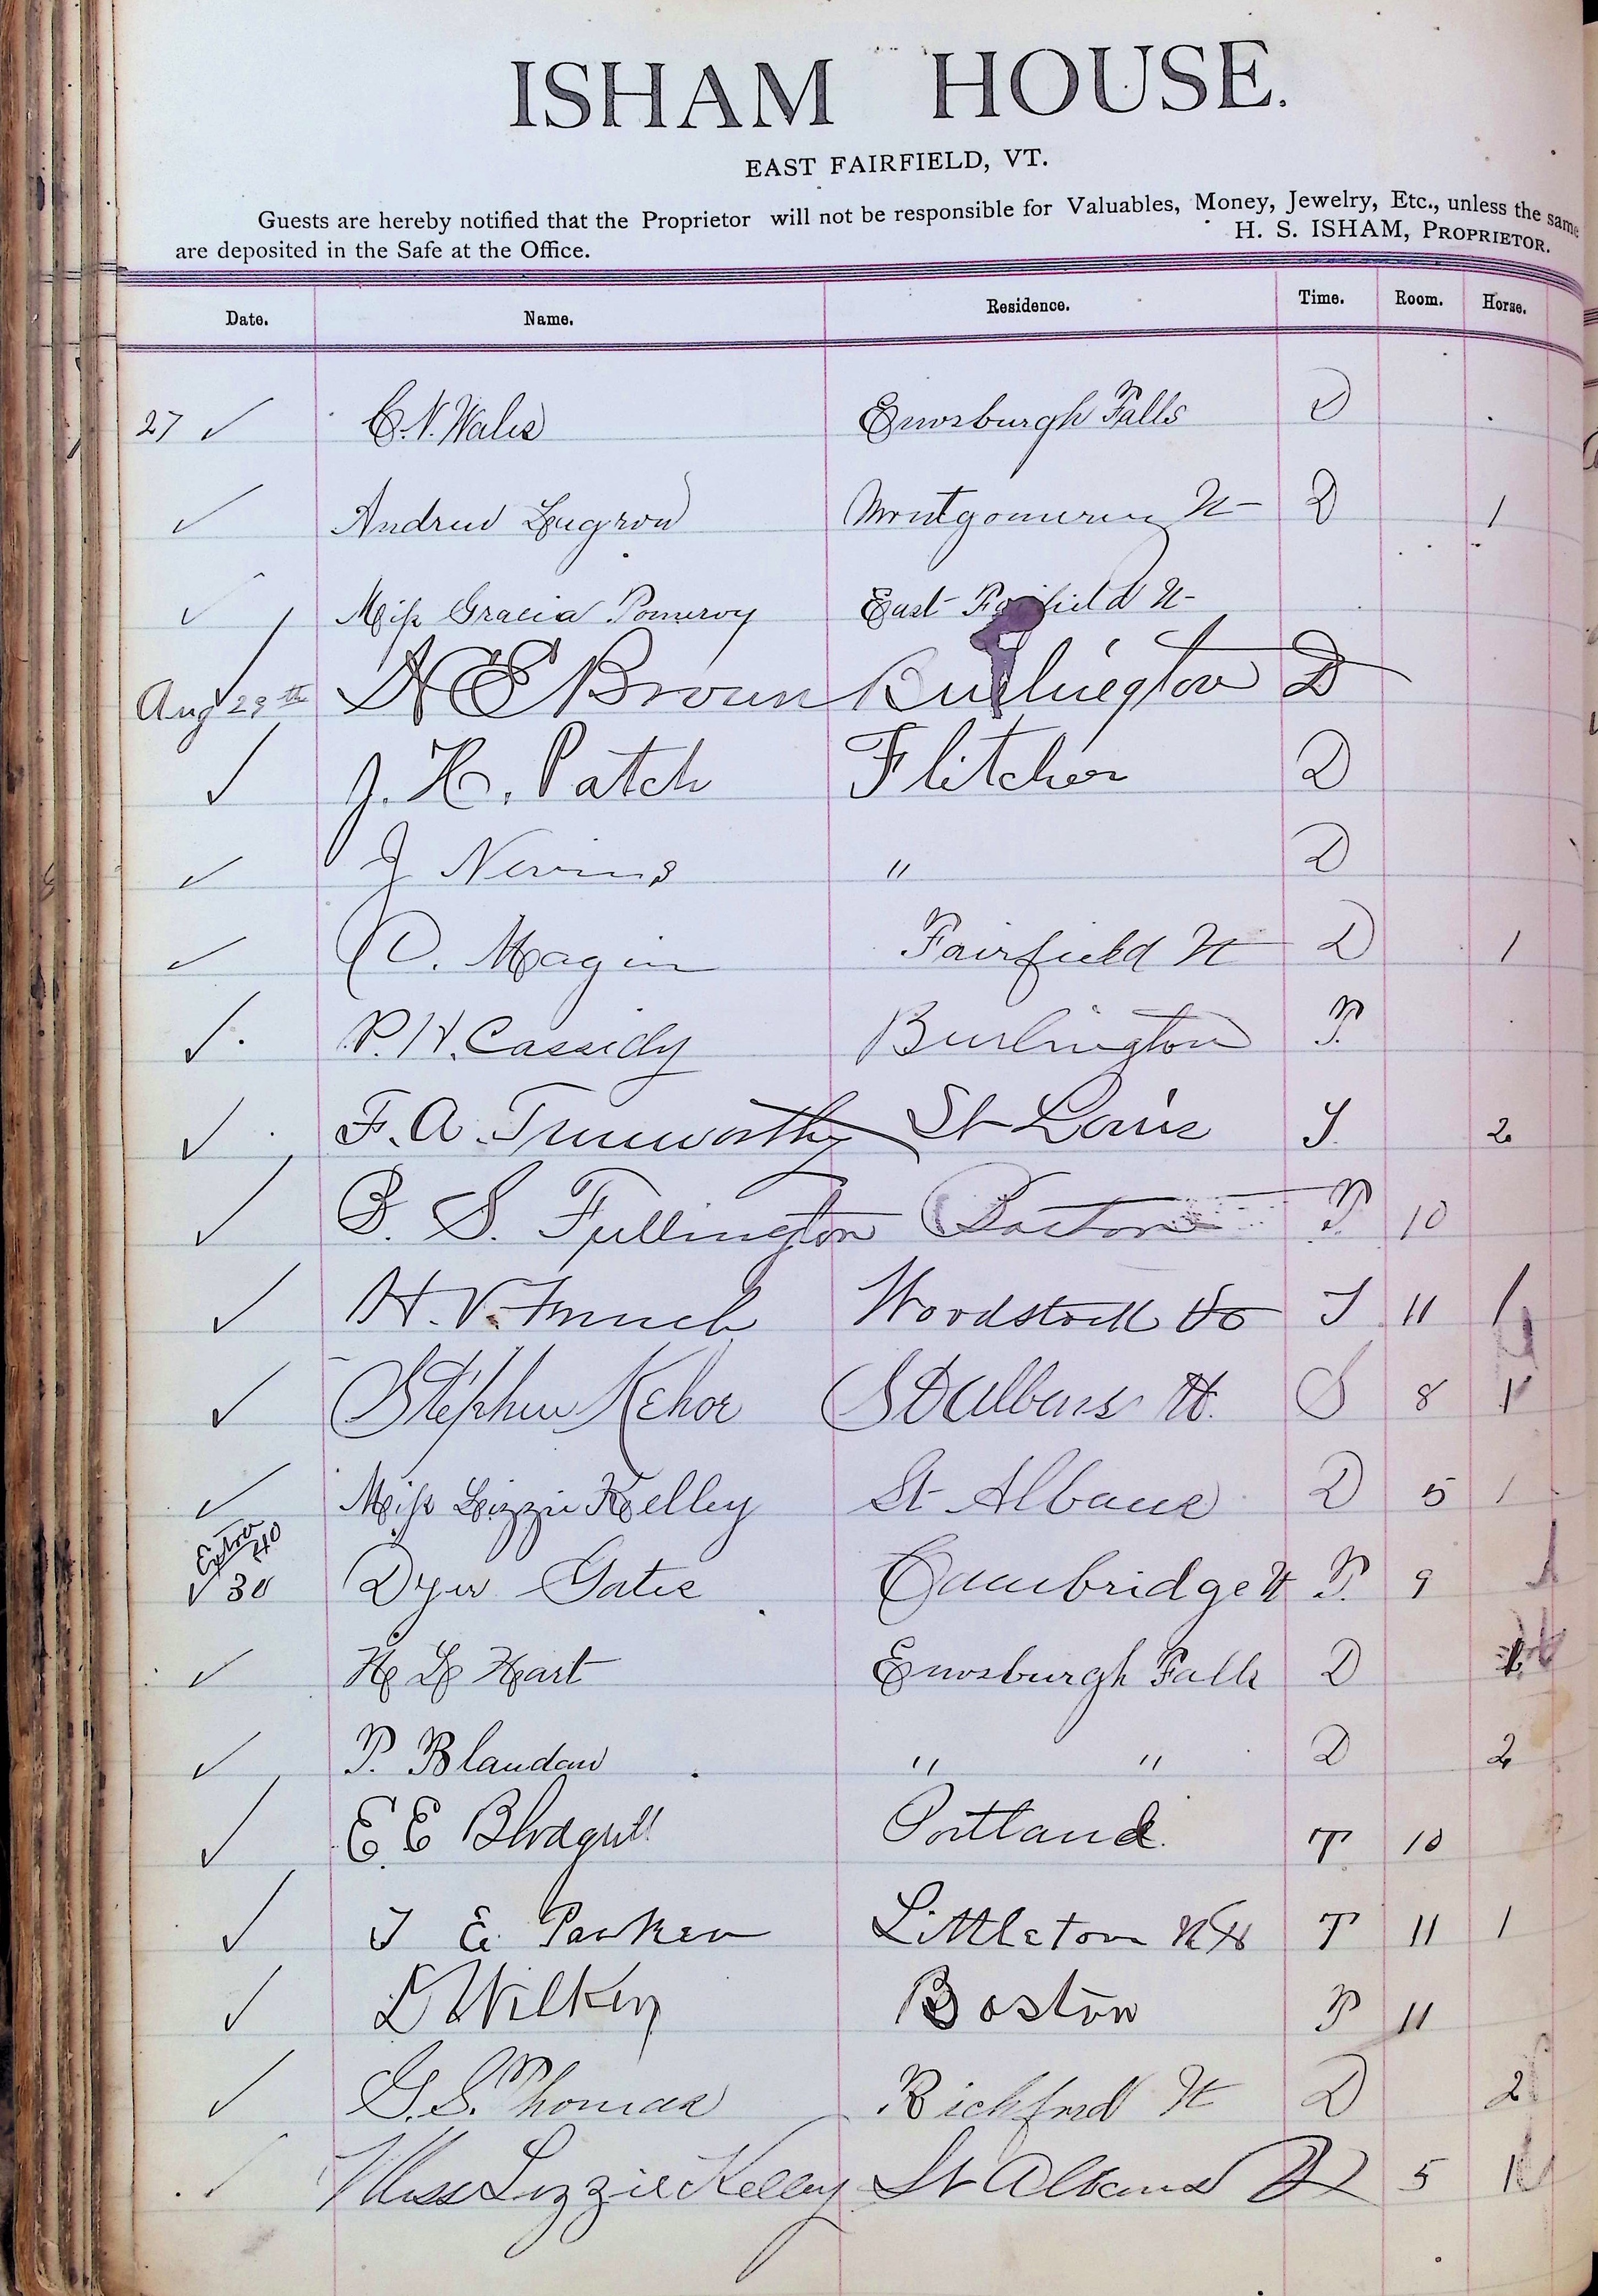 ISHAM HOUSE.
EAST FAIRFIELD, VT.
Guests are hereby notified that the Proprietor will not be responsible for Valuables, Money, Jewelry, Etc., unless the same
are deposited in the Safe at the Office. H. S. ISHAM, PROPRIETOR.
Date. Name. Residence. Time. Room. Horse.
27 ✓ C. N. Wales Enosburgh Falls D
✓ Andrew Lugrow Montgomery Vt D 1
✓ Miss Gracia Pomeroy East Fairfield Vt
Aug 29th ✓ H E Brown Burlington D
✓ J. H. Patch Flitcher D
✓ J Nevins " D
✓ O. Magin Fairfield Vt D 1
✓ P. H. Cassidy Burlington T.
✓ F. A. Trueworthy St Louis S. 2
✓ B. S. Fullington Boston T. 10
✓ H. V. French Woodstock Vt S 11 1
✓ Stephen Kehoe St Albans Vt. S 8 1
✓ Miss Lizzie Kelley St Albans D 5 1
Extra 40
✓ 30 Dyer Gates Cambridge Vt T. 9
✓ H L Hart Enosburgh Falls D
✓ P. Blandan " " D 2
✓ E E Blodgett Portland. T 10
✓ T E Parker Littleton NH T 11 1
✓ L Wilkin Boston T 11
✓ G. S. Thomas Richford Vt D 2
✓ Miss Lizzie Kelley St Albans Vt 5 1